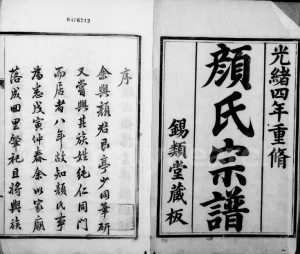 光緒四年重脩
顔氏宗譜
錫類堂藏板
序
余與顔君郎亭少同筆硏
又嘗與其族姓純仁同門
而居者八年故知顔氏事
爲悉戊寅仲春余以家廟
落成田里肇祀且將與族